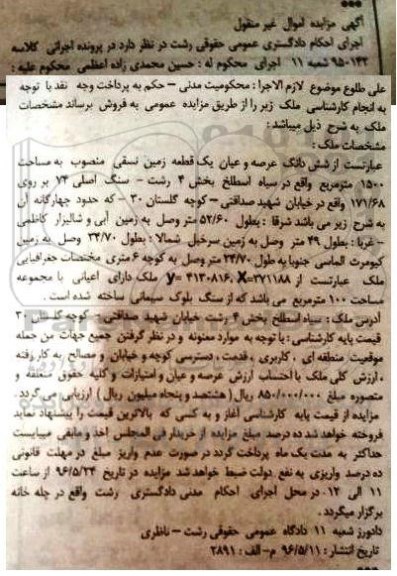 آگهی مزایده اموال غیر منقول
اجرای احکام دادگستری عمومی حقوقی رشت در نظر دارد در پرونده اجرائی کلاسه
۹۵۰۱۴۲ شعبه ۱۱ اجرای محکوم له : حسین محمدی زاده اعظمی محکوم علیه :
علی طلوع موضوع لازم الاجرا : محکومیت مدنی – حکم به پرداخت وجه نقد با توجه
به انجام کارشناسی ملک زیر را از طریق مزایده عمومی به فروش برساند مشخصات
ملک به شرح ذیل میباشد :
مشخصات ملک :
عبارتست از شش دانگ عرصه و عیان یک قطعه زمین نسقی منصوب به مساحت
۱۵۰۰ مترمربع واقع در سیاه اسطلخ بخش ۴ رشت - سنگ اصلی ۷۴ بر روی
۱۷۱/۶۸ واقع در خیابان شهید صداقتی – کوچه گلستان ۳۰ – که حدود چهارگانه آن
به شرح زیر می باشد شرقا : بطول ۵۲/۶۰ متر وصل به زمین آبی و شالیزار کاظمی
– غربا : بطول ۴۹ متر وصل به زمین سرخیل شمالا : بطول ۳۴/۷۰ وصل به زمین
کیومرث الماسی جنوبا به طول ۲۴/۷۰ متر وصل به کوچه ۶ متری مختصات جغرافیایی
ملک عبارتست از X=۳۷۱۱۸۸ ،y= ۴۱۳۰۸۱۶ ملک دارای اعیانی با مجموعه
مساحت ۱۰۰ مترمربع می باشد که از سنگ بلوک سیمانی ساخته شده است .
آدرس ملک : سیاه اسطلخ بخش ۴ رشت خیابان شهید صداقتی - کوچه گلستان ۳۰
قیمت پایه کارشناسی : با توجه به موارد معنونه و در نظر گرفتن جمیع جهات من جمله
موقعیت منطقه ای ، کاربری ، قدمت ، دسترسی کوچه و خیابان و مصالح به کار رفته
، ارزش کلی ملک با احتساب ارزش عرصه و عیان و امتیازات و کلیه حقوق متعلقه و
متصوره مبلغ ۸۵۰/۰۰۰/۰۰۰ ریال ( هشتصد و پنجاه میلیون ریال ) ارزیابی می گردد .
مزایده از قیمت پایه کارشناسی آغاز و به کسی که بالاترین قیمت را پیشنهاد نماید
فروخته خواهد شد ده درصد مبلغ مزایده از خریدار فی المجلس اخذ و مابقی میبایست
حداکثر به مدت یک ماه پرداخت گردد در صورت عدم واریز مبلغ در مهلت قانونی
ده درصد واریزی به نفع دولت ضبط خواهد شد مزایده در تاریخ ۹۶/۵/۲۴ از ساعت
۱۱ الی ۱۲ در محل اجرای احکام مدنی دادگستری رشت واقع در چله خانه
برگزار میگردد .
دادورز شعبه ۱۱ دادگاه عمومی حقوقی رشت – ناظری
تاریخ انتشار : ۹۶/۵/۱۱ م- الف : ۲۸۹۱